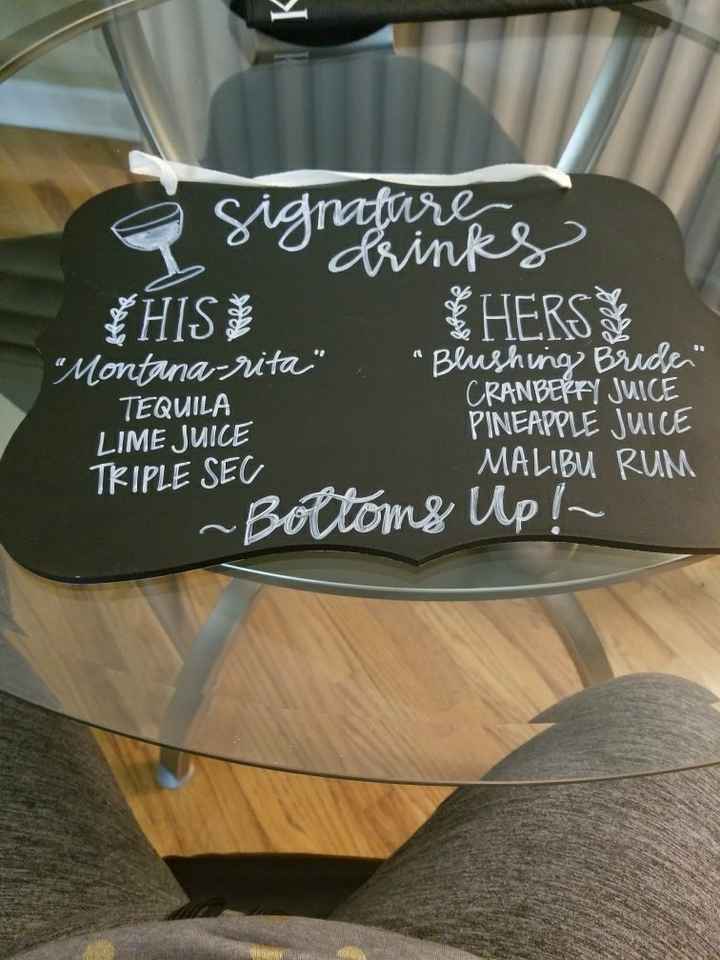 K
signature
drinks
HIS
"Montana-rita"
TEQUILA
LIME JUICE
TRIPLE SEC
HERS
"Blushing Bride"
CRANBERRY JUICE
PINEAPPLE JUICE
MALIBU RUM
~Bottoms Up!~